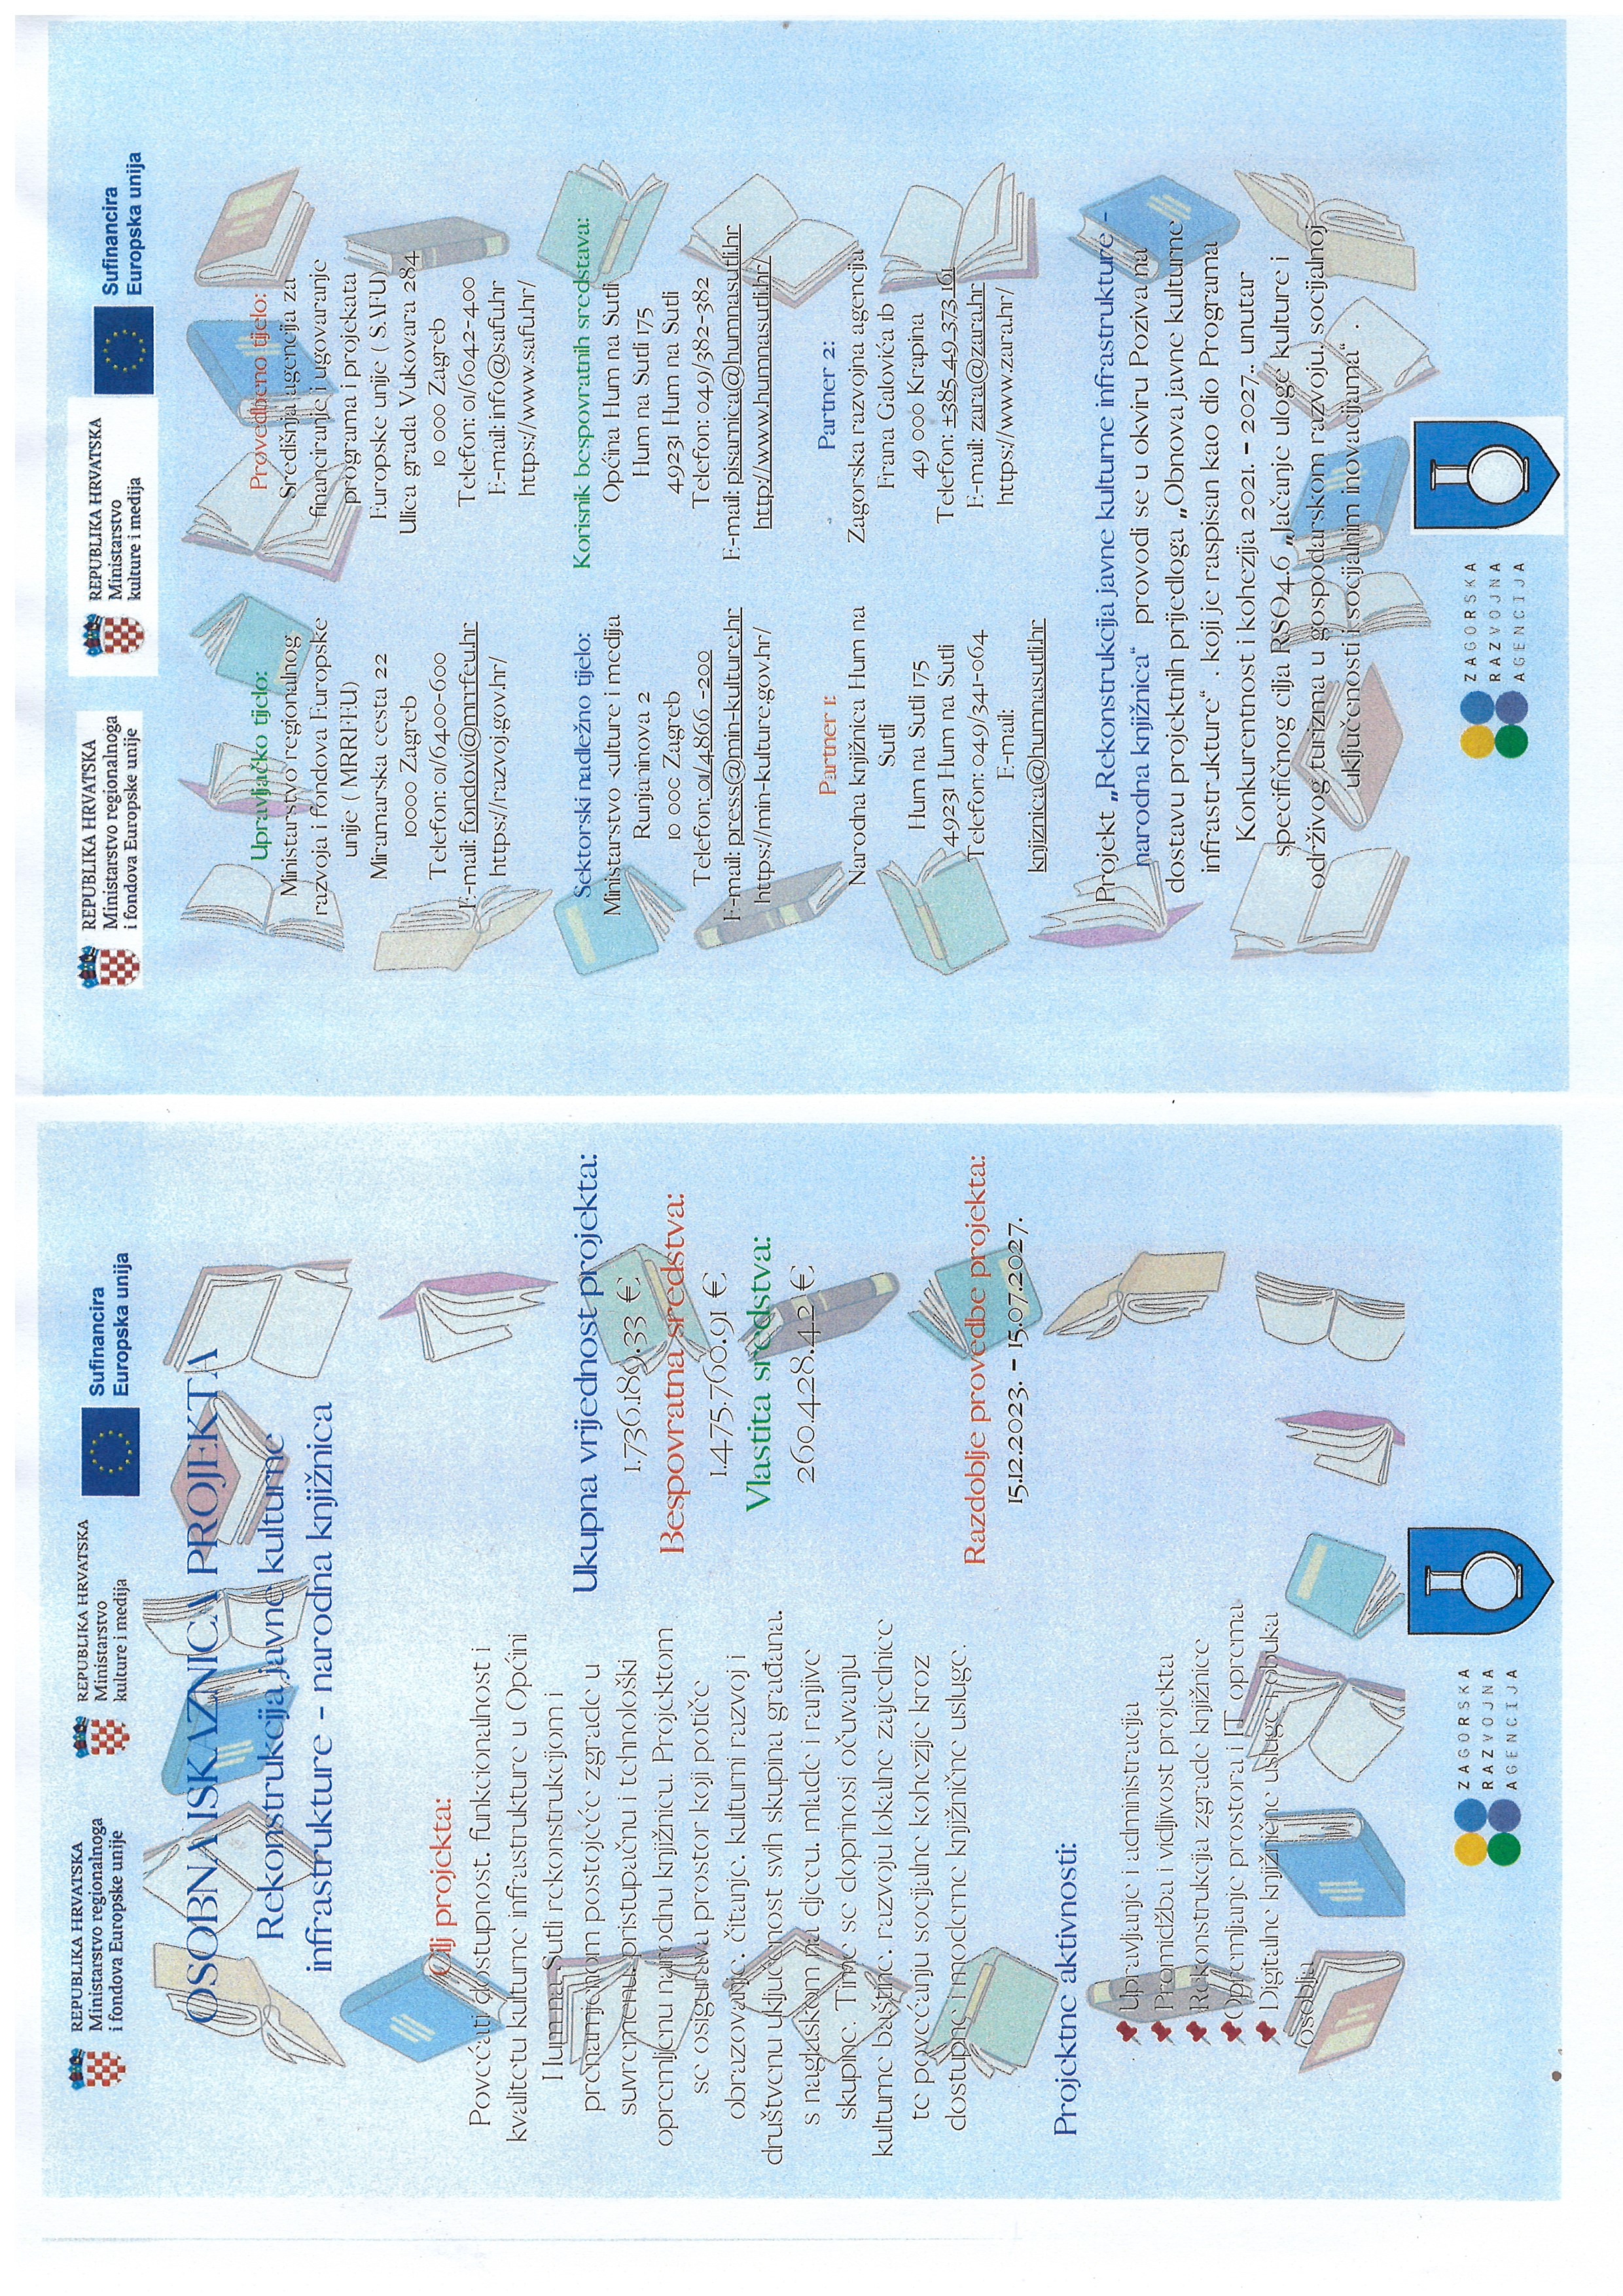 REPUBLIKA HRVATSKA
Ministarstvo regionalnoga
i fondova Europske unije
REPUBLIKA HRVATSKA
Ministarstvo
kulture i medija
Sufinancira
Europska unija
OSOBNA ISKAZNICA PROJEKTA
Rekonstrukcija javne kulturne
infrastrukture - narodna knjižnica
Cilj projekta:
Povećati dostupnost, funkcionalnost i
kvalitetu kulturne infrastrukture u Općini
Hum na Sutli rekonstrukcijom i
prenamjenom postojeće zgrade u
suvremenu, pristupačnu i tehnološki
opremljenu narodnu knjižnicu. Projektom
se osigurava prostor koji potiče
obrazovanje, čitanje, kulturni razvoj i
društvenu uključenost svih skupina građana,
s naglaskom na djecu, mlade i ranjive
skupine. Time se doprinosi očuvanju
kulturne baštine, razvoju lokalne zajednice
te povećanju socijalne kohezije kroz
dostupne i moderne knjižnične usluge.
Ukupna vrijednost projekta:
1.736.189,33 €
Bespovratna sredstva:
1.475.760,91 €
Vlastita sredstva:
260.428,42 €
Razdoblje provedbe projekta:
15.12.2023. - 15.07.2027.
Projektne aktivnosti:
Upravljanje i administracija
Promidžba i vidljivost projekta
Rekonstrukcija zgrade knjižnice
Opremljanje prostora i IT oprema
Digitalne knjižnične usluge i obuka
osoblja
ZAGORSKA
RAZVOJNA
AGENCIJA
REPUBLIKA HRVATSKA
Ministarstvo regionalnoga
i fondova Europske unije
REPUBLIKA HRVATSKA
Ministarstvo
kulture i medija
Sufinancira
Europska unija
Upravljačko tijelo:
Ministarstvo regionalnog
razvoja i fondova Europske
unije ( MRRFEU)
Miramarska cesta 22
10000 Zagreb
Telefon: 01/6400-600
E-mail: fondovi@mrrfeu.hr
https://razvoj.gov.hr/
Provedbeno tijelo:
Središnja agencija za
financiranje i ugovaranje
programa i projekata
Europske unije ( SAFU)
Ulica grada Vukovara 284
10 000 Zagreb
Telefon: 01/6042-400
E-mail: info@safu.hr
https://www.safu.hr/
Sektorski nadležno tijelo:
Ministarstvo kulture i medija
Runjaninova 2
10 000 Zagreb
Telefon: 01/4866 -200
E-mail: press@min-kulture.hr
https://min-kulture.gov.hr/
Korisnik bespovratnih sredstava:
Općina Hum na Sutli
Hum na Sutli 175
49231 Hum na Sutli
Telefon: 049/382-382
E-mail: pisarnica@humnasutli.hr
http://www.humnasutli.hr/
Partner 1:
Narodna knjižnica Hum na
Sutli
Hum na Sutli 175
49231 Hum na Sutli
Telefon: 049/341-064
E-mail:
knjiznica@humnasutli.hr
Partner 2:
Zagorska razvojna agencija
Frana Galovića 1b
49 000 Krapina
Telefon: +385 49 373 161
E-mail: zara@zara.hr
https://www.zara.hr/
Projekt „Rekonstrukcija javne kulturne infrastrukture -
narodna knjižnica“ provodi se u okviru Poziva na
dostavu projektnih prijedloga „Obnova javne kulturne
infrastrukture“ , koji je raspisan kao dio Programa
Konkurentnost i kohezija 2021. - 2027., unutar
specifičnog cilja RSO4.6 „Jačanje uloge kulture i
održivog turizma u gospodarskom razvoju, socijalnoj
uključenosti i socijalnim inovacijama“ .
ZAGORSKA
RAZVOJNA
AGENCIJA